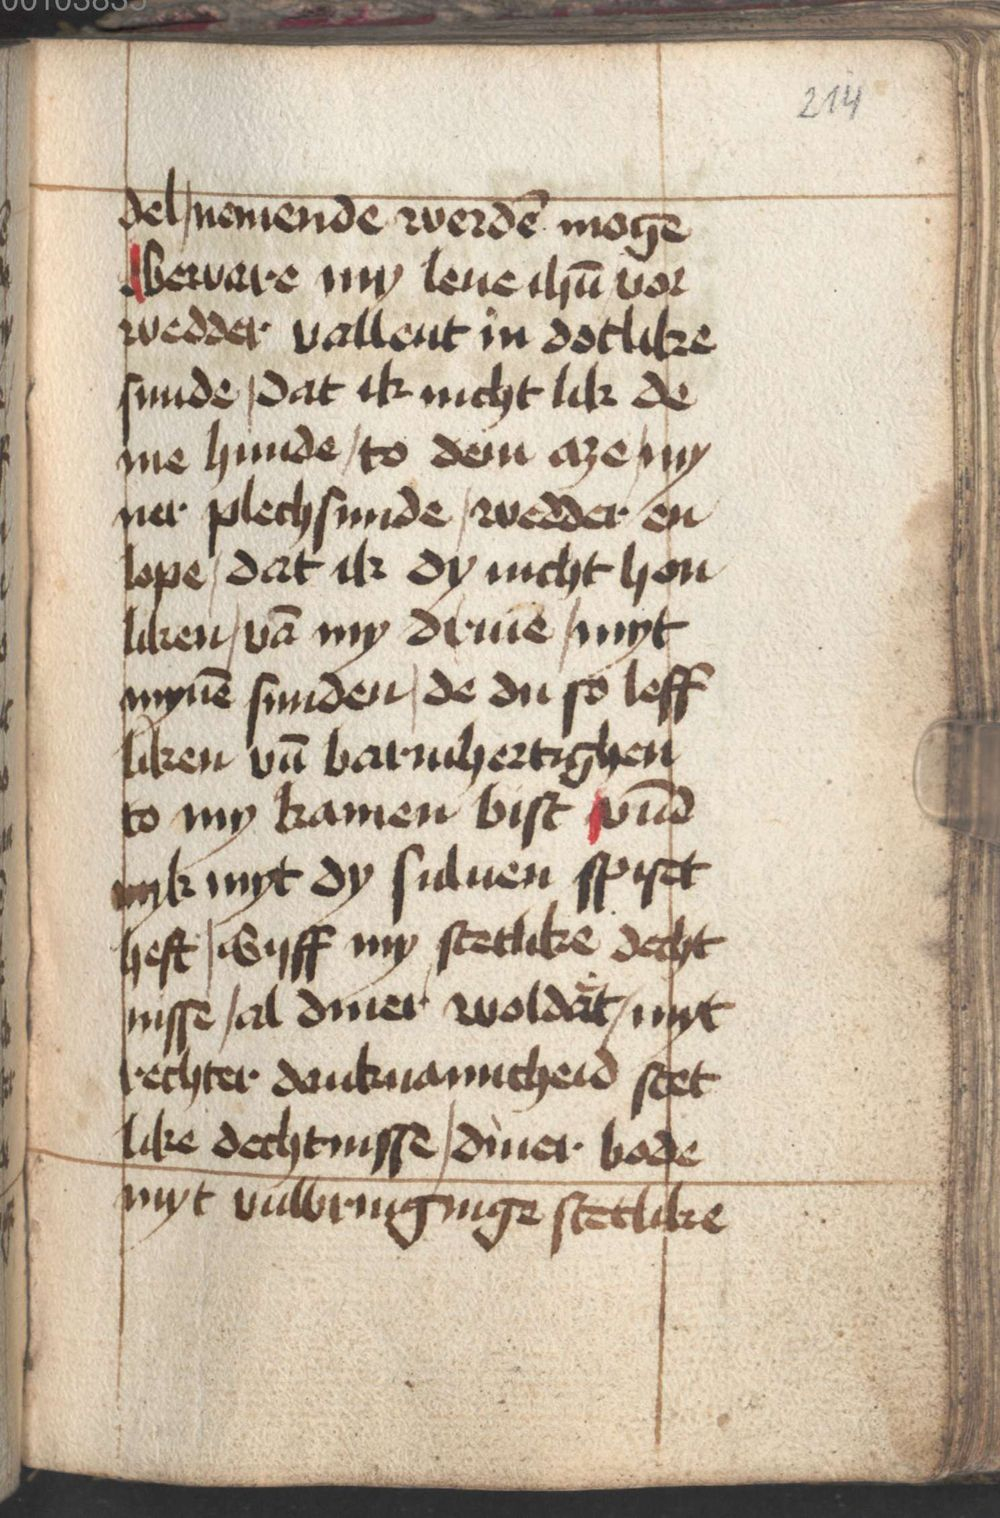 00103835
214
del/nemende werdē mogē
Beware my leue ihū vor
wedder vallent in dotlike
sunde/dat ik nicht lik de
me hunde/to dem aze/my
ner plechsunde/wedder en
lope/dat ik dy nicht hon
liken/vā my driue/myt
mynē sunden/de du so leff
liken vn̄ barmhertighen
to my kamen bist vn̄d
myk myt dy suluen spiset
hest/Gyff my stetlike decht
nisse/al diner woldat/myt
rechter danknamicheid stet
like dechtnisse/diner bode
myt vulbringinge stetlike